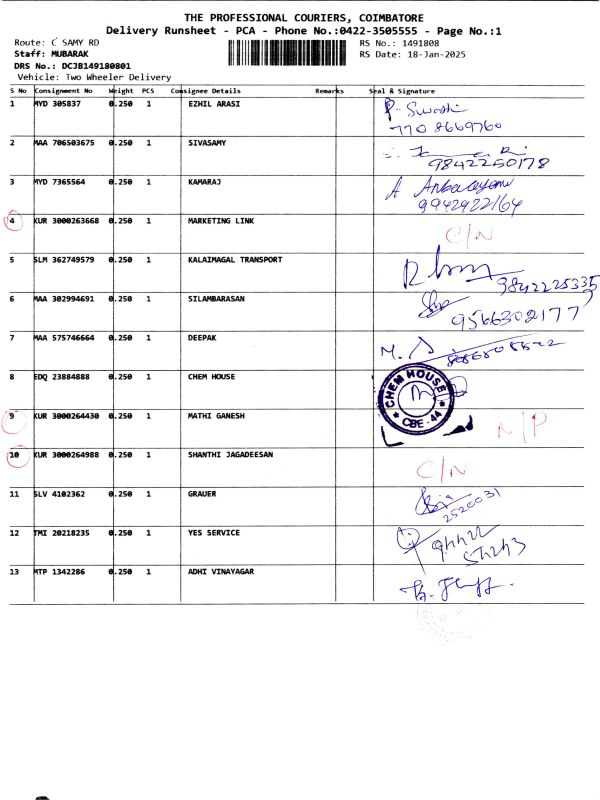 THE PROFESSIONAL COURIERS, COIMBATORE
Delivery Runsheet - PCA - Phone No.:0422-3505555 - Page No.:1
Route: C SAMY RD RS No.: 1491808
Staff: MUBARAK RS Date: 18-Jan-2025
DRS No.: DCJB149180801
Vehicle: Two Wheeler Delivery
S No Consignment No Weight PCS Consignee Details Remarks Seal & Signature
1 MYD 305837 0.250 1 EZHIL ARASI P. Swathi
770 8669760
2 MAA 706503675 0.250 1 SIVASAMY
9842250178
3 MYD 7365564 0.250 1 KAMARAJ A
9942922164
4 KUR 3000263668 0.250 1 MARKETING LINK C/N
5 SLM 362749579 0.250 1 KALAIMAGAL TRANSPORT
9842225335
6 MAA 302994691 0.250 1 SILAMBARASAN
9566302177
7 MAA 575746664 0.250 1 DEEPAK M.
8 EDQ 23884888 0.250 1 CHEM HOUSE CHEM HOUSE
CBE-44
9 KUR 3000264430 0.250 1 MATHI GANESH N/P
10 KUR 3000264988 0.250 1 SHANTHI JAGADEESAN C/N
11 SLV 4102362 0.250 1 GRAUER
2520031
12 TMI 20218235 0.250 1 YES SERVICE
13 MTP 1342286 0.250 1 ADHI VINAYAGAR